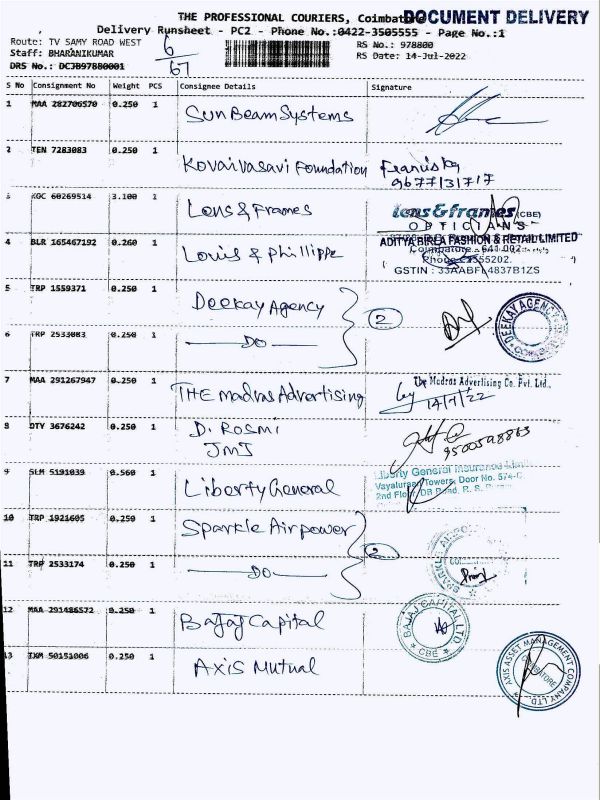 THE PROFESSIONAL COURIERS, Coimbatore
DOCUMENT DELIVERY
Delivery Runsheet - PC2 - Phone No.:0422-3505555 - Page No.:1
Route: TV SAMY ROAD WEST
6
RS No.: 978800
Staff: BHARANIKUMAR
RS Date: 14-Jul-2022
DRS No.: DCJB97880001
67
S No Consignment No Weight PCS Consignee Details Signature
1 MAA 282706570 0.250 1 Sun Beam Systems
2 TEN 7283083 0.250 1 Kovai Vasavi Foundation
3 KGC 60269514 3.100 1 Lens & Frames
lens & frames (CBE)
OPTICIANS
4 BLR 165467192 0.260 1 Louis & Phillippe
ADITYA BIRLA FASHION & RETAIL LIMITED
Coimbatore - 641 002
GSTIN : 33AABFL4837B1ZS
5 TRP 1559371 0.250 1 Deekay Agency
2
DEEKAY AGENCY
6 TRP 2533083 0.250 1 —DO—
7 MAA 291267947 0.250 1 THE Madras Advertising
The Madras Advertising Co. Pvt. Ltd.,
14/7/22
8 OTY 3676242 0.250 1 D. Rosmi
JMJ
9500598863
9 SLM 5191039 0.560 1 Liberty General
Liberty General Insurance
Vayaluraan Towers, Door No. 574-C
2nd Floor, DB Road, R. S.
10 TRP 1921605 0.250 1 Sparkle Airpower
2
11 TRP 2533174 0.250 1 —DO—
12 MAA 291486572 0.250 1 Bajaj Capital
BAJAJ CAPITAL LTD
CBE
13 IXM 50151006 0.250 1 Axis Mutual
AXIS ASSET MANAGEMENT COMPANY LTD
COIMBATORE